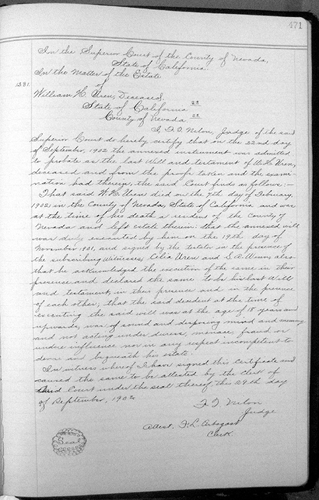 471
In the Superior Court of the County of Nevada,
State of California.
In the Matter of the Estate
1391 of
William H. Uren, Deceased.
State of California } ss
County of Nevada }
I, F. T. Nilon, Judge of the said
Superior Court do hereby certify that on the 22nd day
of September, 1902 the annexed instrument was admitted
to probate as the last Will and testament of W. H. Uren,
deceased and from the proofs taken and the exami-
nation had therein the said Court finds as follows:—
That said W. H. Uren died on the 7th day of February,
1902 in the County of Nevada, State of California and was
at the time of his death a resident of the County of
Nevada and left estate therein: that the annexed will
was duly executed by him on the 19th day of
November 1901, and signed by the testator in the presence of
the subscribing witnesses, Celia Uren and
that he acknowledged the execution of the same in their
presence and declared the same to be his last Will
and testament in their presence and in the presence
of each other, that the said decedent at the time of
executing the said will was at the age of 18 years and
upwards, was of sound and disposing mind and memory
and not acting under duress, menace, fraud or
undue influence, nor in any respect incompetent to
devise and bequeath his estate.
In witness whereof I have signed this Certificate and
caused the same to be attested by the Clerk of
said Court under the seal thereof this 29th day
of September, 1902
F. T. Nilon
Judge
Seal
Attest, F. L. Arbogast
Clerk